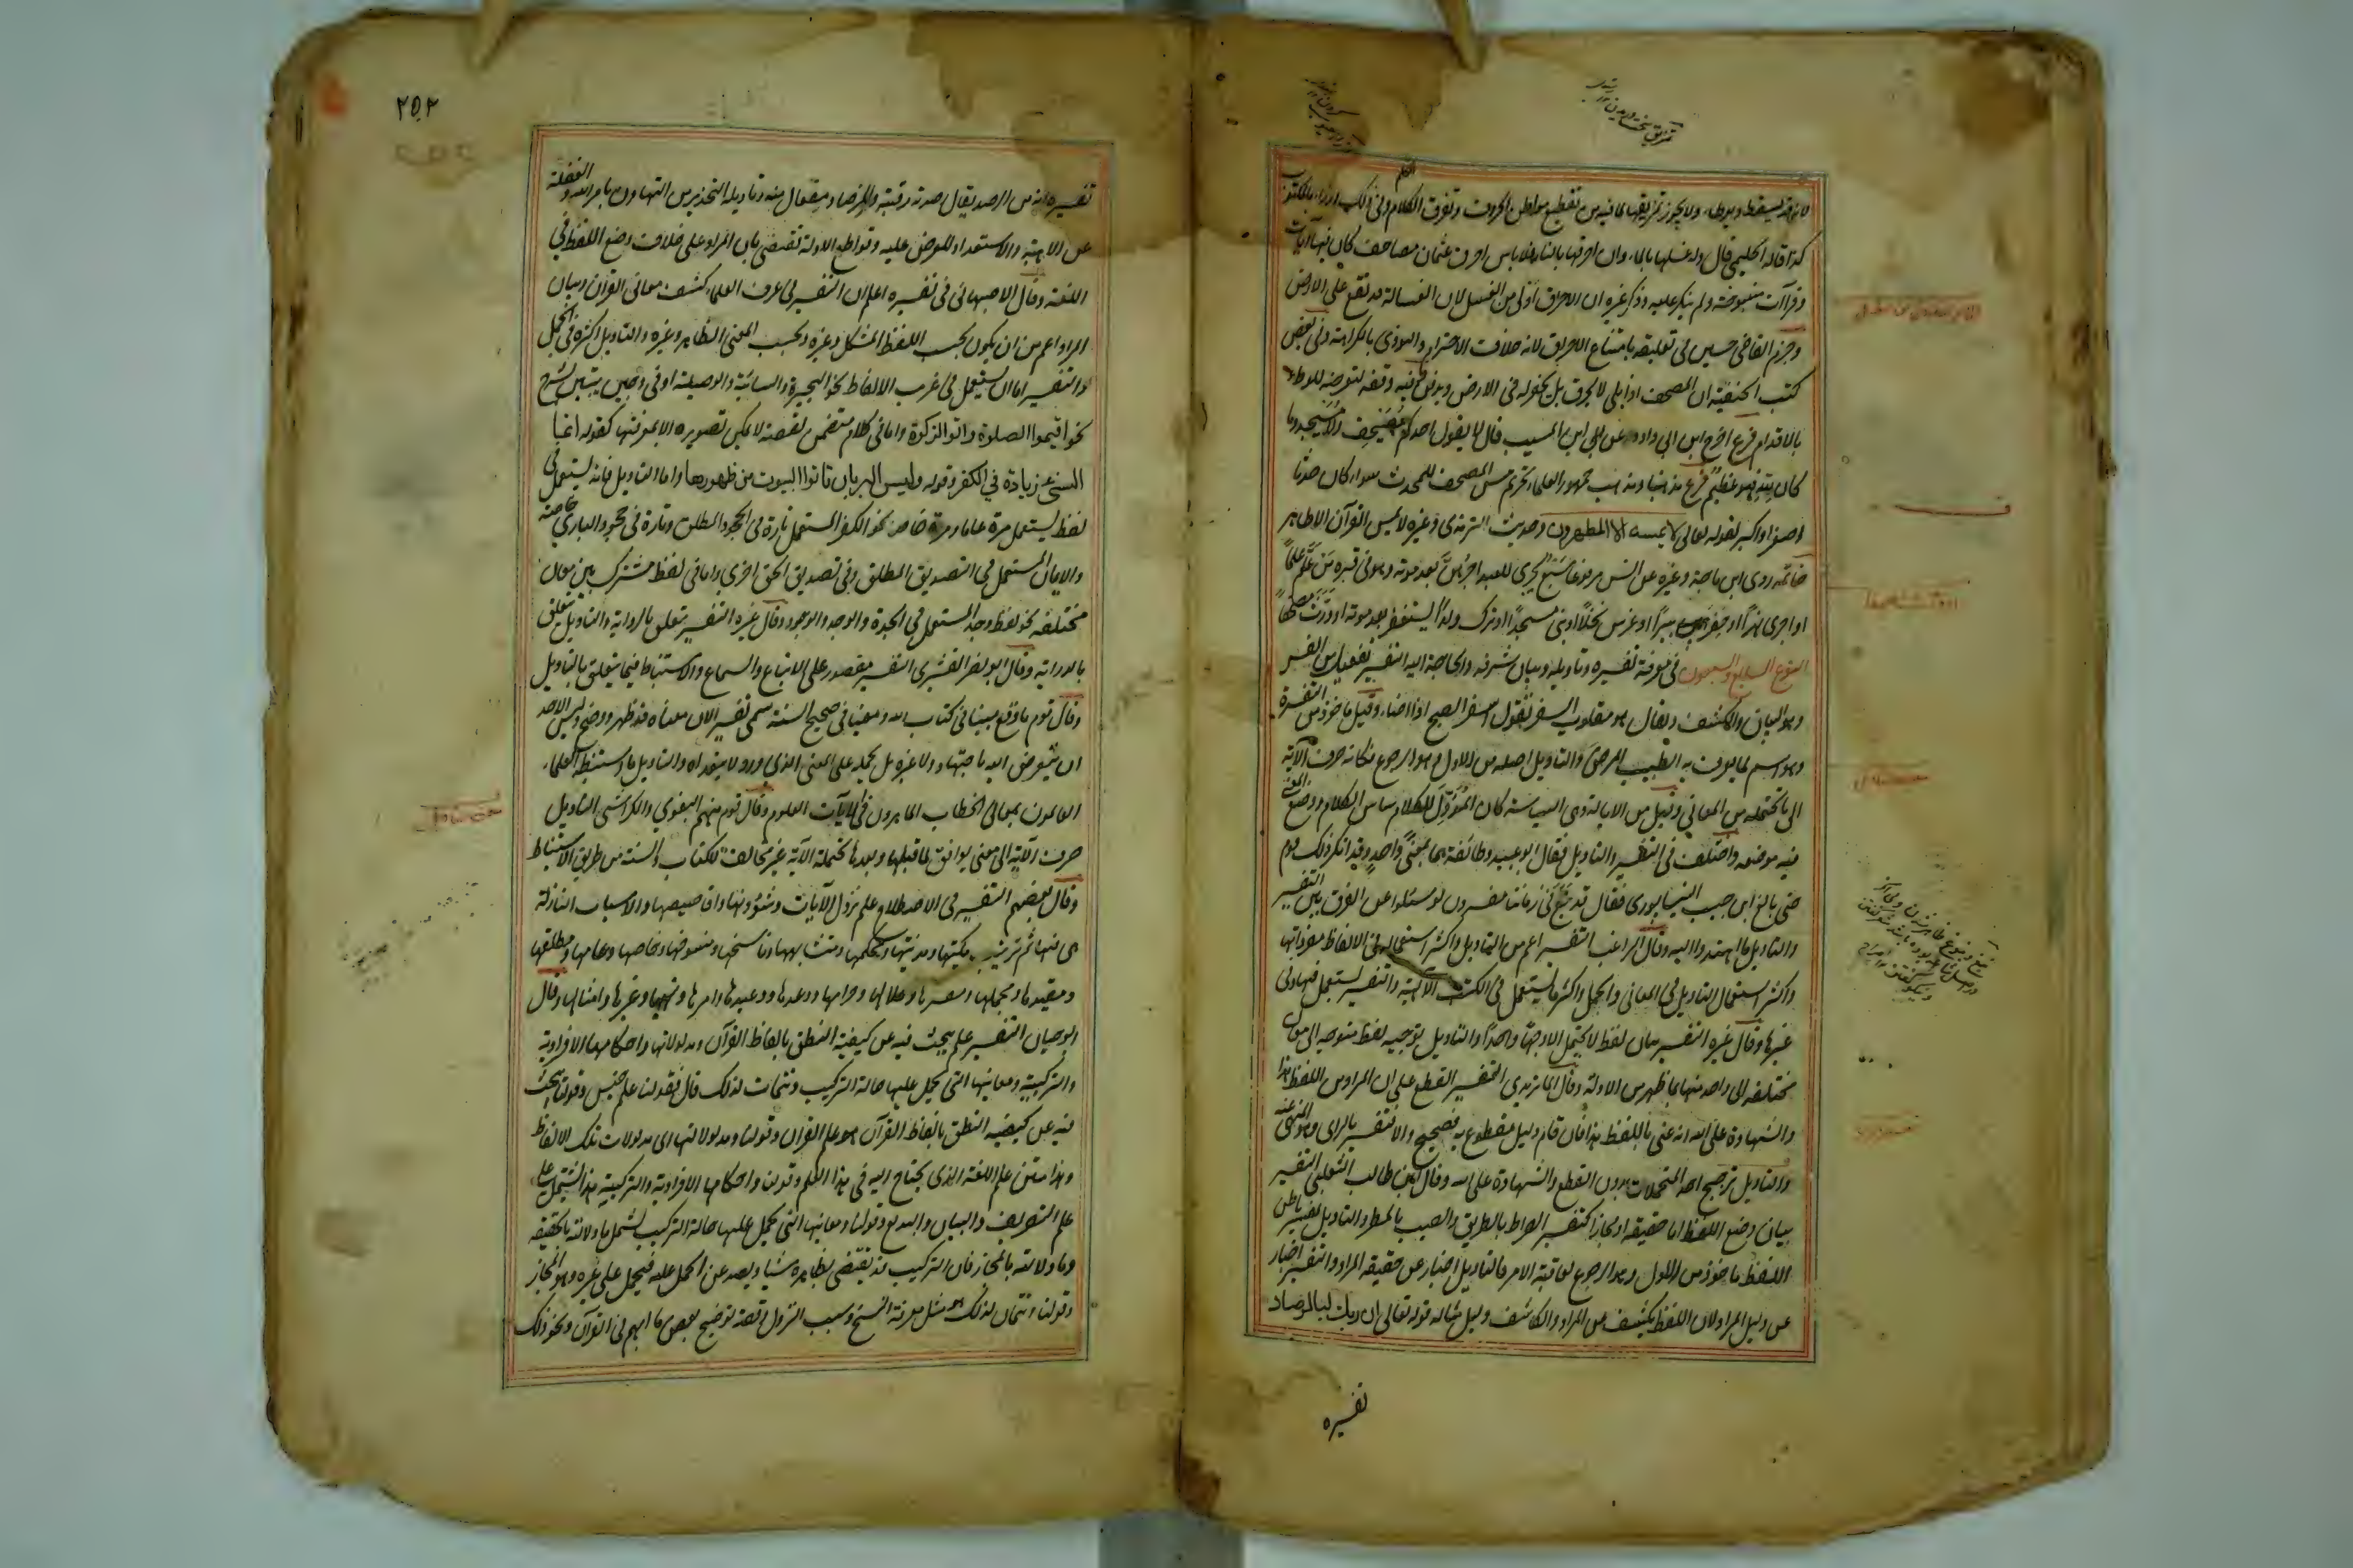 لانه قد يسقط ويوطا ولا يجوز تمزيقها لما فيه من تقطيع الحروف وتفرق الكلم وفي ذلك ازراء بالمكتوب
كذا قاله الحليمي قال وله غسلها بالماء وان احرقها بالنار فلا باس احرق عثمان مصاحف كان فيها آيات
وقراآت منسوخة ولم ينكر عليه وذكر غيره ان الاحراق اولى من الغسل لان الغسالة قد تقع على الارض
وجزم القاضي حسين في تعليقه بامتناع الاحراق لانه خلاف الاحترام والنووي بالكراهة وفي بعض
كتب الحنفية ان المصحف اذا بلي لا يحرق بل يحفر له في الارض ويدفن فيه وقفه لتعرضه للوطء
بالاقدام فرع اخرج ابن ابي داود عن ابن المسيب قال لا يقول احدكم مصيحف ولا مسيجد وما
كان لله فهو عظيم فرع مذهبنا ومذهب جمهور العلماء تحريم مس المصحف للمحدث سواء كان حدثا
اصغر او اكبر لقوله تعالى لا يمسه الا المطهرون وحديث الترمذي وغيره لا يمس القرآن الا طاهر
خاتمه روى ابن ماجة وغيره عن انس مرفوعا سبع يجري للعبد اجرهن بعد موته وهو في قبره من علم علما
او اجرى نهرا او حفر بيرا او غرس نخلا او بنى مسجدا او ترك ولدا يستغفر بعد موته او ورث مصحفا
النوع السابع والسبعون في معرفة تفسيره وتاويله وبيان شرفه والحاجة اليه التفسير تفعيل من الفسر
وهو البيان والكشف ويقال هو مقلوب السفر تقول اسفر الصبح اذا اضاء وقيل ماخوذ من التفسرة
وهو اسم لما يعرف به الطبيب المرض والتاويل اصله من الاول وهو الرجوع فكانه صرف الآية
الى ما تحتمله من المعاني وقيل من الايالة وهي السياسة كان المؤول للكلام ساس الكلام ووضع المعنى
فيه موضعه واختلف في التفسير والتاويل فقال ابو عبيد وطائفة هما بمعنى واحد وقد انكر ذلك قوم
حتى بالغ ابن حبيب النيسابوري فقال قد نبغ في زماننا مفسرون لو سئلوا عن الفرق بين التفسير
والتاويل ما اهتدوا اليه وقال الراغب التفسير اعم من التاويل واكثر استعماله في الالفاظ ومفرداتها
واكثر استعمال التاويل في المعاني والجمل واكثر ما يستعمل في الكتب الآلهية والتفسير يستعمل فيها وفي
غيرها وقال غيره التفسير بيان لفظ لا يحتمل الا وجها واحدا والتاويل توجيه لفظ متوجه الى معان
مختلفه الى واحد منها بما ظهر من الادلة وقال الماتريدي التفسير القطع على ان المراد من اللفظ هذا
والشهادة على الله انه عنى باللفظ هذا فان قام دليل مقطوع به فصحيح والا تفسير بالراي وهو المنهي عنه
والتاويل ترجيح احد المحتملات بدون القطع والشهادة على الله وقال ابو طالب الثعلبي التفسير
بيان وضع اللفظ اما حقيقه او مجازا كتفسير الصراط بالطريق والصيب بالمطر والتاويل تفسير باطن
اللفظ ماخوذ من الاول وهو الرجوع لعاقبة الامر فالتاويل اخبار عن حقيقه المراد والتفسير اخبار
عن دليل المراد لان اللفظ يكشف عن المراد والكاشف دليل مثاله قوله تعالى ان ربك لبالمرصاد
تفسيره
٢٥٢
تفسيره انه من الرصد يقال رصدته رقبته والمرصاد مفعال منه وتاويله التحذير من التهاون بامر الله والغفلة
عن الاهبة والاستعداد للعرض عليه وقواطع الادلة تقتضي بيان المراد على خلاف وضع اللفظ في
اللغة وقال الاصبهاني في تفسيره اعلم ان التفسير في عرف العلماء كشف معاني القرآن وبيان
المراد اعم من ان يكون بحسب اللفظ المشكل وغيره وبحسب المعنى الظاهر وغيره والتاويل اكثره في الجمل
والتفسير اما ان يستعمل في غريب الالفاظ نحو البحيرة والسائبة والوصيلة او في وجيز يتبين بشرح
نحو اقيموا الصلوة واتوا الزكوة واما في كلام متضمن لقصة لا يمكن تصويره الا بمعرفتها كقوله انما
النسيء زيادة في الكفر وقوله وليس البر بان تاتوا البيوت من ظهورها واما التاويل فانه يستعمل في
لفظ يستعمل مرة عاما ومرة خاصا نحو الكفر المستعمل تارة في الجحود المطلق وتارة في جحود الباري خاصة
والايمان المستعمل في التصديق المطلق وفي تصديق الحق اخرى واما في لفظ مشترك بين معان
مختلفه نحو لفظ وجد المستعمل في الجدة والوجد والوجود وقال غيره التفسير يتعلق بالرواية والتاويل يتعلق
بالدراية وقال ابو نصر القشيري التفسير مقصور على الاتباع والسماع والاستنباط فيما يتعلق بالتاويل
وقال قوم ما وقع مبينا في كتاب الله ومعينا في صحيح السنة سمي تفسيرا لان معناه قد ظهر ووضح وليس لاحد
ان يتعرض اليه باجتهاد ولا غيره بل يحمله على المعنى الذي ورد لا يتعداه والتاويل ما استنبطه العلماء
العالمون بمعاني الخطاب الماهرون في آلات العلوم وقال قوم منهم البغوي والكواشي التاويل
صرف الآية الى معنى يوافق لما قبلها وبعدها تحتمله الآية غير مخالف للكتاب والسنة من طريق الاستنباط
وقال بعضهم التفسير في الاصطلاح علم نزول الآيات وشؤونها واقاصيصها والاسباب النازلة
فيها ثم ترتيب مكيتها ومدنيتها ومحكمها ومتشابهها وناسخها ومنسوخها وخاصها وعامها ومطلقها
ومقيدها ومجملها ومفسرها وحلالها وحرامها ووعدها ووعيدها وامرها ونهيها وعبرها وامثالها وقال
ابو حيان التفسير علم يبحث فيه عن كيفية النطق بالفاظ القرآن ومدلولاتها واحكامها الافرادية
والتركيبية ومعانيها التي تحمل عليها حالة التركيب وتتمات لذلك قال فقولنا علم جنس وقولنا يبحث
فيه عن كيفيه النطق بالفاظ القرآن هو علم القراءة وقولنا ومدلولاتها اي مدلولات تلك الالفاظ
وهذا متن علم اللغة الذي يحتاج اليه في هذا العلم وقولنا واحكامها الافرادية والتركيبية هذا يشتمل على
علم التصريف والبيان والبديع وقولنا ومعانيها التي تحمل عليها حالة التركيب يشمل ما دلالته بالحقيقه
وما دلالته بالمجاز فان التركيب قد يقتضي بظاهره شيا ويصد عن الحمل عليه فيحمل على غيره وهو المجاز
وقولنا وتتمات لذلك هو مثل معرفة النسخ وسبب النزول وقصة توضح بعض ما ابهم في القرآن ونحو ذلك